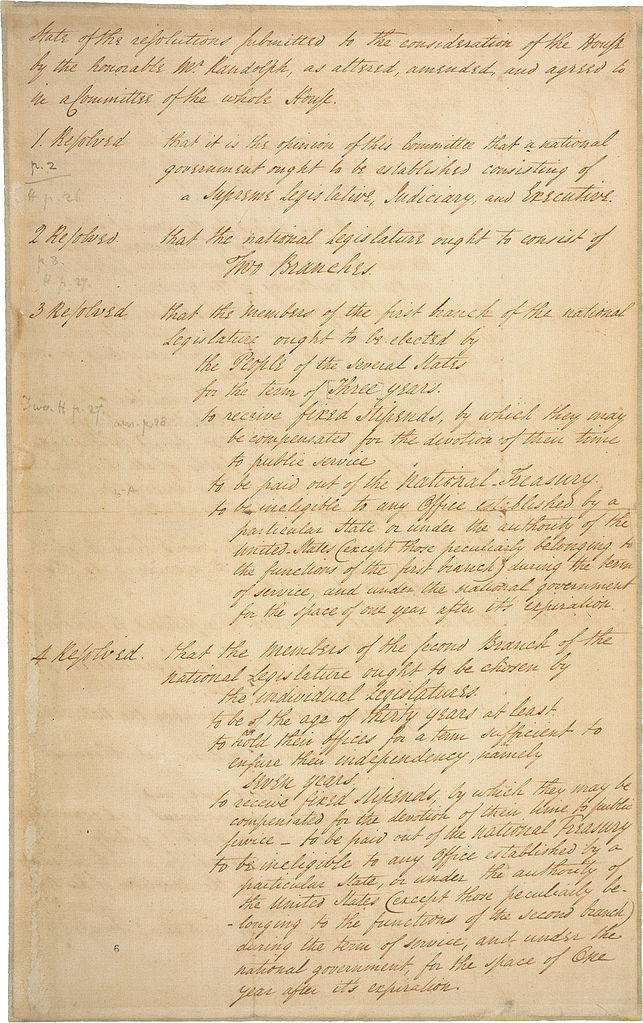 State of the resolutions submitted to the consideration of the House
by the honorable Mr. Randolph, as altered, amended, and agreed to
in a Committee of the whole House.
1. Resolved that it is the opinion of this Committee that a national
government ought to be established consisting of
a Supreme Legislative, Judiciary, and Executive.
p. 2
H p. 26
2 Resolved. that the national Legislature ought to consist of
Two Branches.
p. 3.
H. p. 27.
3 Resolved that the Members of the first branch of the national
Legislature ought to be elected by
the People of the several States
for the term of Three years.
to receive fixed Stipends, by which they may
be compensated for the devotion of their time
to public service
to be paid out of the National-Treasury.
to be ineligible to any Office established by a
particular State or under the authority of the
United-States (except those peculiarly belonging to
the functions of the first branch) during the term
of service, and under the national government
for the space of one year after it's expiration.
H. p. 27.
p. 28
4 Resolved. that the Members of the second Branch of the
national Legislature ought to be chosen by
the individual Legislatures.
to be of the age of thirty years at least.
to hold their offices for a term sufficient to
ensure their independency, namely
seven years.
to receive fixed Stipends, by which they may be
compensated for the devotion of their time to public
service – to be paid out of the National Treasury
to be ineligible to any Office established by a
particular State, or under the authority of
the United States (except those peculiarly be-
-longing to the functions of the second branch)
during the term of service, and under the
national government, for the space of One
year after it's expiration.
6